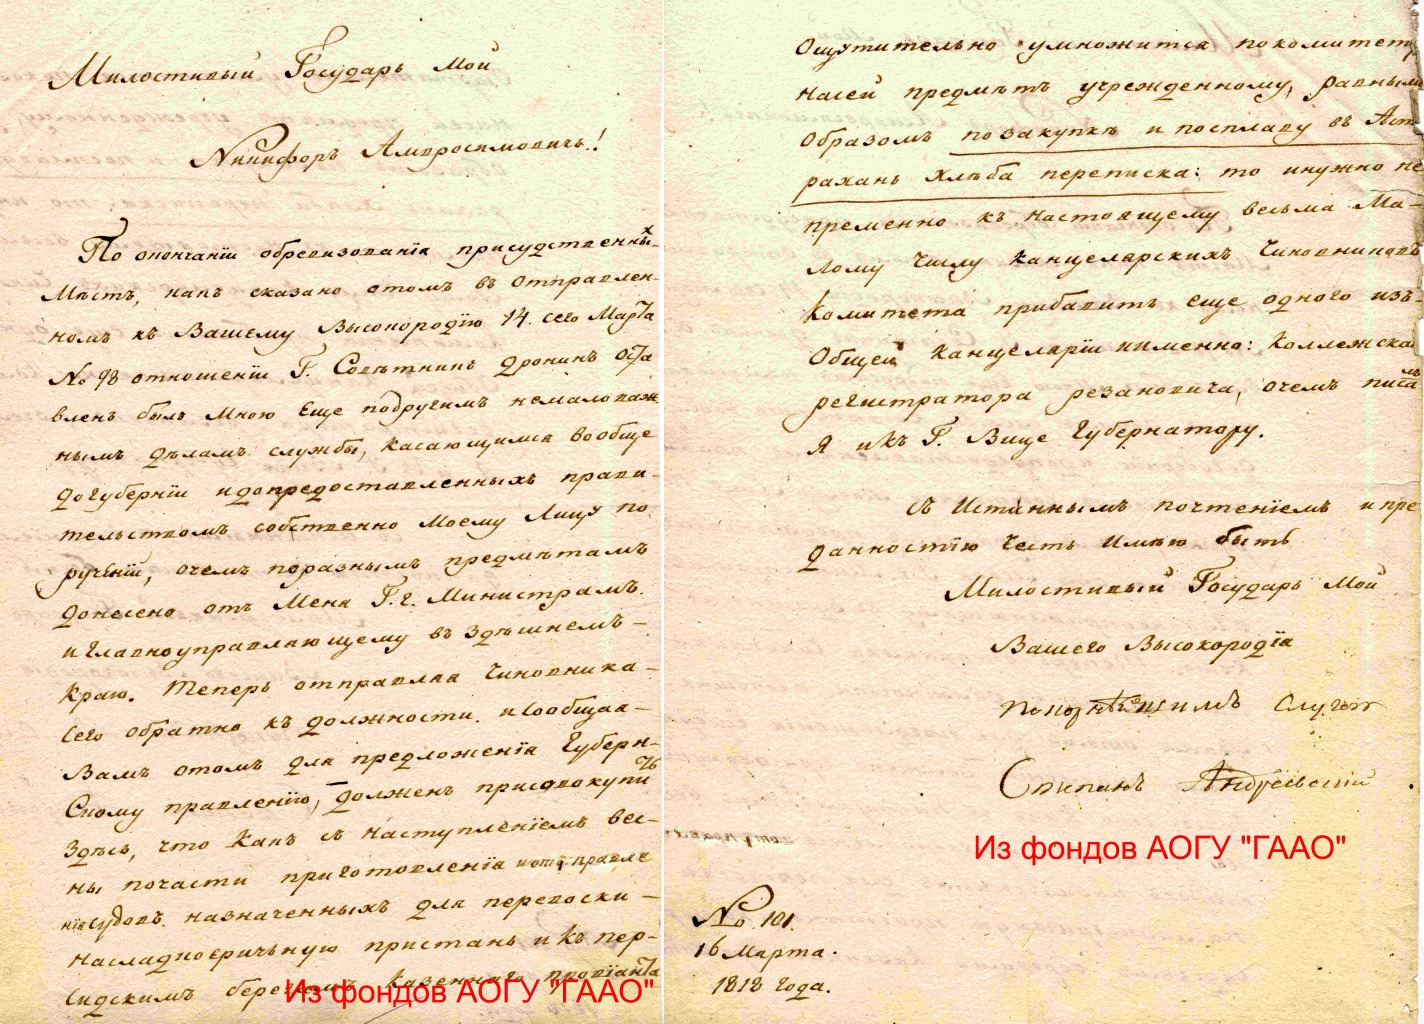 Милостивый Государь Мой
Никифоръ Амвросимовичь!
По окончаніи обревизованія присудственных
Мѣстъ, какъ сказано отомъ въ отправлен-
номъ къ Вашему Высокородію 14. сего Марта
No 98 отношеніи Г. Совѣтникъ Дронинъ оста
вленъ былъ Мною еще подругимъ немаловаж
нымъ дѣламъ службы, касающимся вообще
догуберніи идопредоставленныхъ прави-
тельствомъ собственно Моему Лицу по
рученіи, очемъ поразнымъ предмѣтамъ
донесено отъ Меня Г.г. Министрамъ.
иглавноуправляющему въ здѣшнемъ-
краю. Теперь отправляя Чиновника-
сего обратно къ должности. исообщая-
Вамъ отомъ для предложенія Губерн-
скому правленію, должен присовокупить
здѣсь, что какъ съ наступленіемъ вес-
ны почасти приготовленія иотправле
ніясудовъ назначенныхъ для перевоски-
насладкоеричьную пристань и къ пер-
сидскимъ берегамъ казеннаго провіанта
Из фондов АОГУ "ГААО"
Ощутительно умножится покомитету
насей предмѣтъ учрежденному, равнымъ
образомъ позакупкѣ и посплаву въ Аст
рахань хлѣба переписка: то инужно не
премѣнно къ настоящему весьма Ма-
лому числу канцелярскихъ Чиновниковъ
комитета прибавить еще одного изъ-
Общей канцеляріи иименно: Коллежска
регистратора резановича, очемъ писалъ
Я икъ Г. Вице Губернатору.
Съ Истиннымъ почтеніемъ ипре
данностію честь имѣю быть
Милостивый Государь Мой
Вашего Высокородія
покорнѣйшимъ Слугою
Степанъ Андреевскій
Из фондов АОГУ "ГААО"
No 101.
16 Марта.
1818 года.